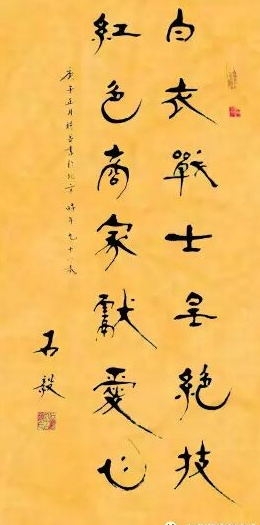 白衣戰士呈絕技
紅色商家獻愛心
庚子正月書於北京 時年九十八歲
石毅